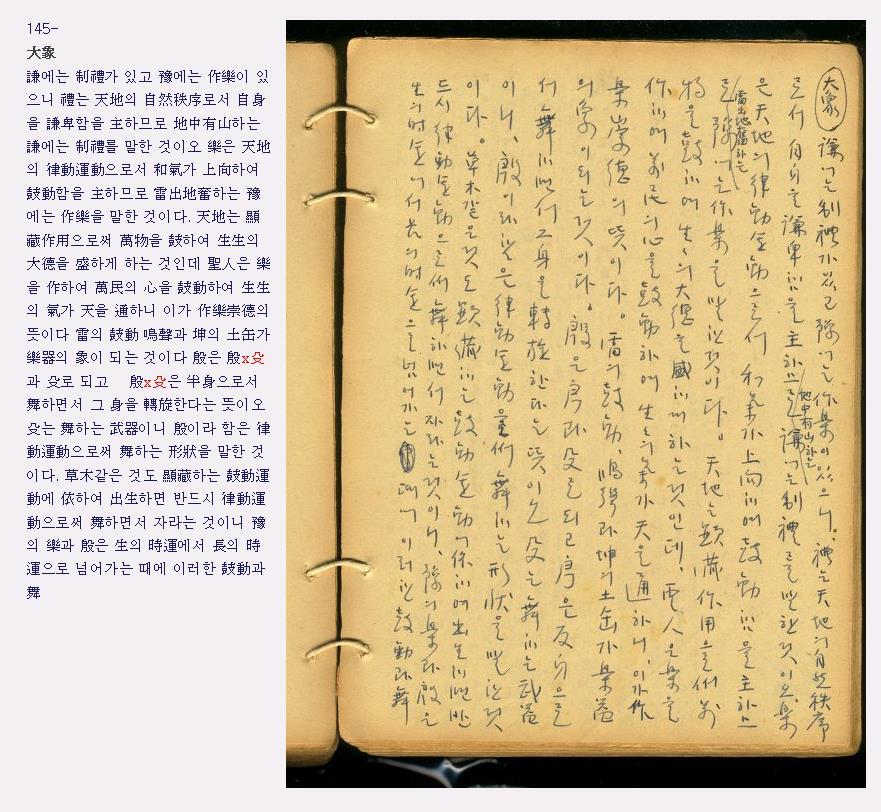 145-
大象
謙에는 制禮가 있고 豫에는 作樂이 있
으니 禮는 天地의 自然秩序로서 自身
을 謙卑함을 主하므로 地中有山하는
謙에는 制禮를 말한 것이오 樂은 天地
의 律動運動으로서 和氣가 上向하여
鼓動함을 主하므로 雷出地奮하는 豫
에는 作樂을 말한 것이다. 天地는 顯
藏作用으로써 萬物을 鼓하여 生生의
大德을 盛하게 하는 것인데 聖人은 樂
을 作하여 萬民의 心을 鼓動하여 生生
의 氣가 天을 通하니 이가 作樂崇德의
뜻이다 雷의 鼓動 鳴聲과 坤의 土缶가
樂器의 象이 되는 것이다 殷은 殷x殳
과 殳로 되고 殷x殳은 半身으로서
舞하면서 그 身을 轉旋한다는 뜻이오
殳는 舞하는 武器이니 殷이라 함은 律
動運動으로써 舞하는 形狀을 말한 것
이다. 草木같은 것도 顯藏하는 鼓動運
動에 依하여 出生하면 반드시 律動運
動으로써 舞하면서 자라는 것이니 豫
의 樂과 殷은 生의 時運에서 長의 時
運으로 넘어가는 때에 이러한 鼓動과
舞
大象 謙에는 制禮가 있고 豫에는 作樂이 있으니, 禮는 天地의 自然秩序
로서 自身을 謙卑함을 主하므로 地中有山하는 謙에는 制禮를 말한 것이오 樂
은 天地의 律動運動으로서 和氣가 上向하여 鼓動함을 主하므
로 雷出地奮하는 豫에는 作樂을 말한 것이다. 天地는 顯藏作用으로써 萬
物을 鼓하여 生生의 大德을 盛하게 하는 것인데, 聖人은 樂을
作하여 萬民의 心을 鼓動하여 生生의 氣가 天을 通하니, 이가 作
樂崇德의 뜻이다. 雷의 鼓動, 鳴聲과 坤의 土缶가 樂器
의 象이 되는 것이다. 殷은 㐆과 殳로 되고 㐆은 反身으로
서 舞하면서 그 身을 轉旋한다는 뜻이오 殳는 舞하는 武器
이니, 殷이라 함은 律動運動으로써 舞하는 形狀을 말한 것
이다. 草木같은 것도 顯藏하는 鼓動運動에 依하여 出生하면 반
드시 律動運動으로써 舞하면서 자라는 것이니, 豫의 樂과 殷은
生의 時運에서 長의 時運으로 넘어가는 때에 이러한 鼓動과 舞